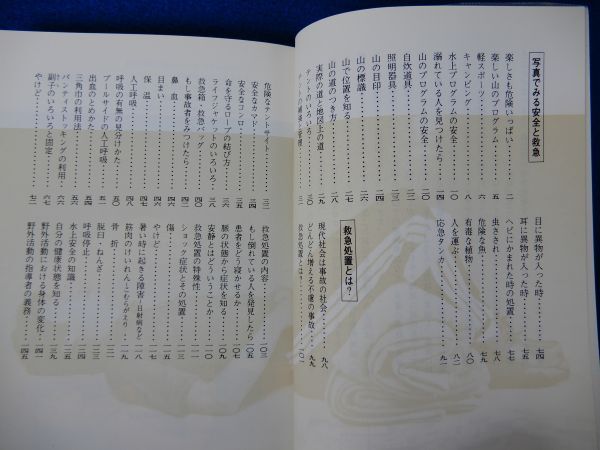 写真でみる安全と救急
楽しさも危険いっぱい……二
楽しい山のプログラム……五
軽スポーツ……六
キャンピング……八
水上プログラムの安全……一〇
溺れている人を見つけたら……一四
山のプログラムの安全
自炊道具
照明器具
山の目印……二四
山の標識……二六
山で位置を知る
山の道のつき方
実際の道と地図上の道……二九
テントのいろいろ……三〇
目に異物が入った時……七四
耳に異物が入った時……七五
ヘビにかまれた時の処置……七七
虫さされ……七八
危険な魚……七九
有毒な植物……八〇
人を運ぶ……八二
応急タンカ
救急処置とは？
現代社会は事故の社会……九八
どんどん増える不慮の事故……九九
救急処置とは？……一〇一
危険なテントサイト……三二
安全なカマド……三四
安全なコンロ……三六
命を守るロープの結び方
ライフジャケットのいろいろ……三八
救急箱・救急バッグ……四〇
もし事故者をみつけたら……四二
鼻血……四四
目まい……四六
保温……四七
人工呼吸……四八
呼吸の有無の見分けかた……五〇
プールサイドの人工呼吸
出血のとめかた……五四
三角巾の利用法……五六
パンティストッキングの利用……六六
副子のいろいろと固定……六七
やけど……七二
救急処置の内容……一〇三
もし倒れている人を発見したら……一〇五
患者をどう寝かせるか
脈の状態から症状を知る……一〇八
安静とはどういうことか……一一〇
救急処置の特殊性……一一一
ショック症状とその処置……一一三
傷
やけど……一一七
暑い時に起きる障害（日射病など）
筋肉のけいれん（こむらがえり）……一一九
骨折……一二一
脱臼・ねんざ
呼吸停止
水上安全の知識
自分の健康状態を知る
野外活動における身体の変化……一四一
野外活動の指導者の義務……一四五